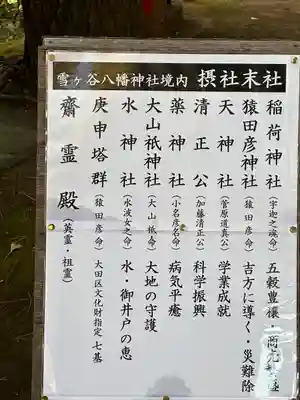 雪ヶ谷八幡神社境内 摂社末社
稲荷神社(宇迦之魂命)五穀豊穣・商売繁盛
猿田彦神社(猿田彦命)吉方に導く・災難除
天神社(菅原道真公)学業成就
清正公(加藤清正公)科学振興
薬神社(小名彦名命)病気平癒
大山祇神社(大山祇命)大地の守護
水神社(水波女之命)水・御井戸の恵
庚申塔群(猿田彦命)大田区文化財指定七基
齋霊殿(英霊・祖霊)